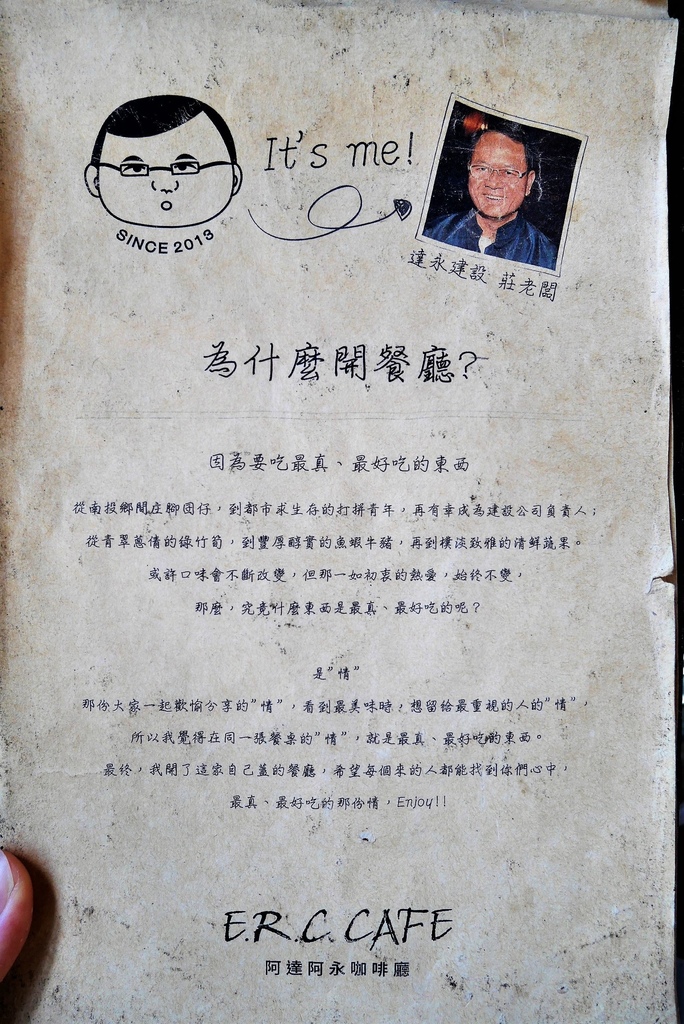 It's me!
SINCE 2013
達永建設 莊老闆
為什麼開餐廳?
因為要吃最真、最好吃的東西
從南投鄉間庄腳囝仔，到都市求生存的打拼青年，再有幸成為建設公司負責人；
從青翠蔥倩的綠竹筍，到豐厚醇實的魚蝦牛豬，再到樸淡致雅的清鮮蔬果。
或許口味會不斷改變，但那一如初衷的熱愛，始終不變，
那麼，究竟什麼東西是最真、最好吃的呢？
是"情"
那份大家一起歡愉分享的"情"，看到最美味時，想留給最重視的人的"情"，
所以我覺得在同一張餐桌的"情"，就是最真、最好吃的東西。
最終，我開了這家自己蓋的餐廳，希望每個來的人都能找到你們心中，
最真、最好吃的那份情，Enjoy!!
E.R.C. CAFE
阿達阿永咖啡廳